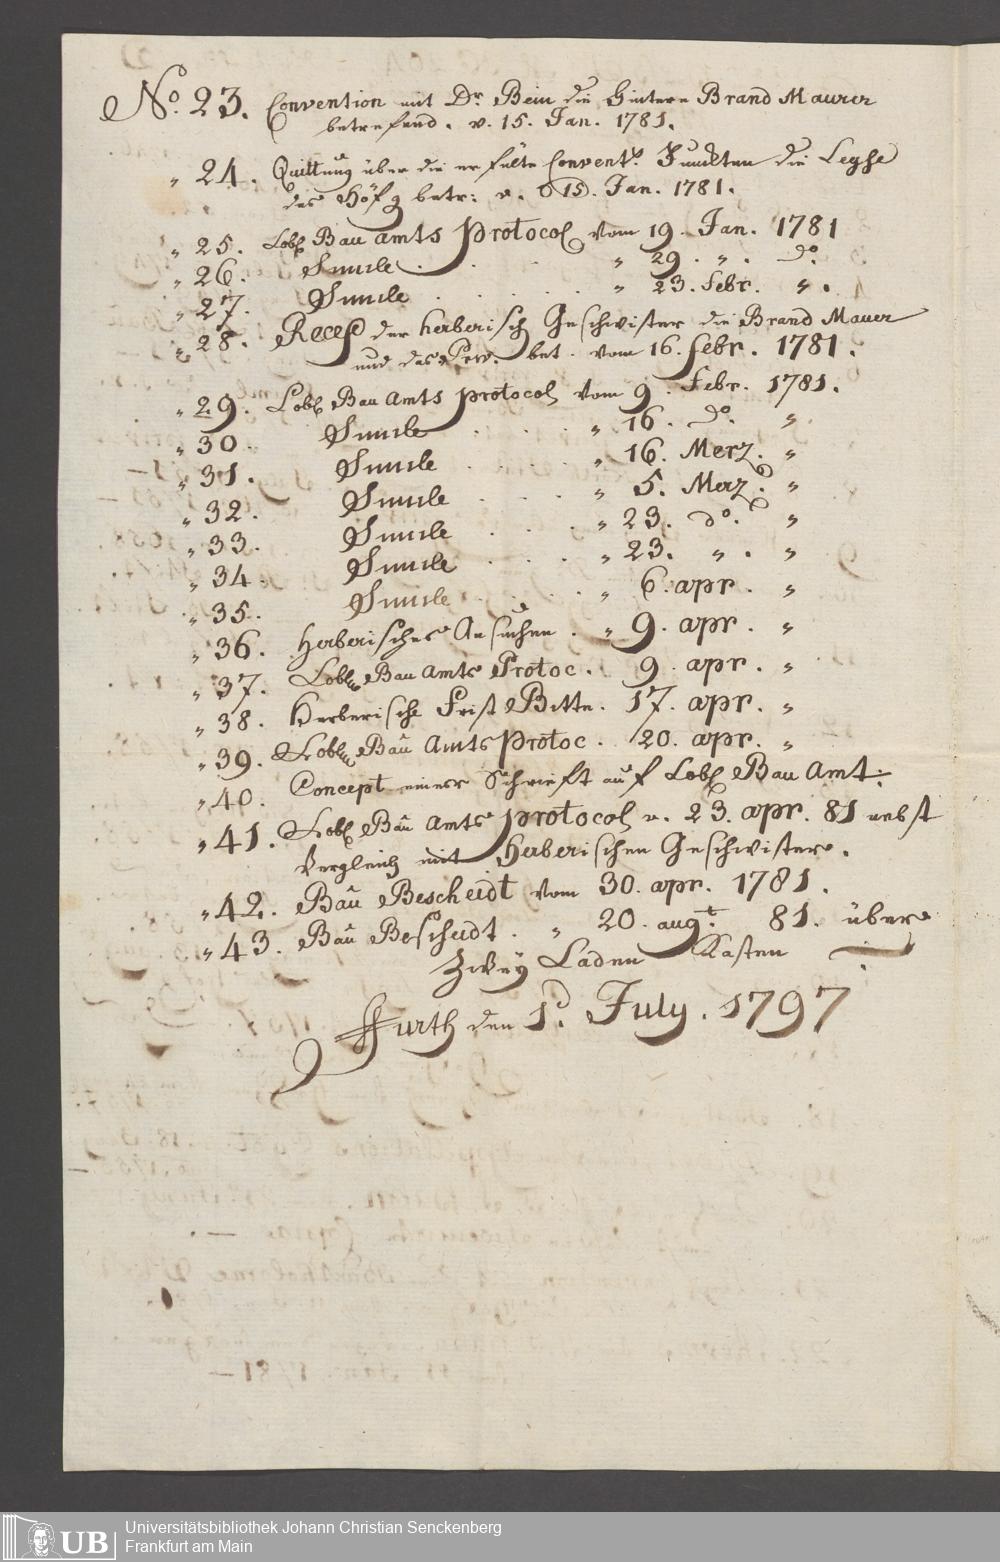 No. 23. Convention mit Dr. Bein die Hintere Brand Maurer
betrefend. v. 15. Jan. 1781.
„ 24. Quittung über die er fülte Convent. Punckten die
des Höfg betr: v. 15. Jan. 1781.
„ 25. Lobl Bau amts Protocol vom 19. Jan. 1781
„ 26. Simile . . . „ 29. „ . do.
„ 27. Simile . . . . . „ 23. Febr. „ .
„ 28. Recess der Herberisch Geschwister die Brand Mauer
und das Prw. bet. vom 16. Febr. 1781.
„ 29. Lobl Bau Amts protocol vom 9. Febr. 1781.
„ 30. Simile . . . „ 16. do. „
„ 31. Simile . . . „ 16. Merz. „
„ 32. Simile . . . „ 5. Merz. „
„ 33. Simile . . . „ 23. do. „
„ 34. Simile . . . „ 23. „ . „
„ 35. Simile . . . „ 6. apr. „
„ 36. Herberisches Ansuchen . „ 9. apr. „
„ 37. Lobl Bau Amts Protoc. 9. apr. „
„ 38. Herberische Frist Bitte. 17. apr. „
„ 39. Lobl Bau Amts Protoc. 20. apr. „
„ 40. Concept einer Schrieft auf Lobl Bau Amt:
„ 41. Lobl Bau Amts protocol v. 23. apr. 81 nebst
Vergleich mit Herberischen Geschwister.
„ 42. Bau Bescheidt vom 30. apr. 1781.
„ 43. Bau Bescheidt . „ 20. augt. 81. über
Zwey Laden Kasten
ffurth den 1. July. 1797
UB
Universitätsbibliothek Johann Christian Senckenberg
Frankfurt am Main